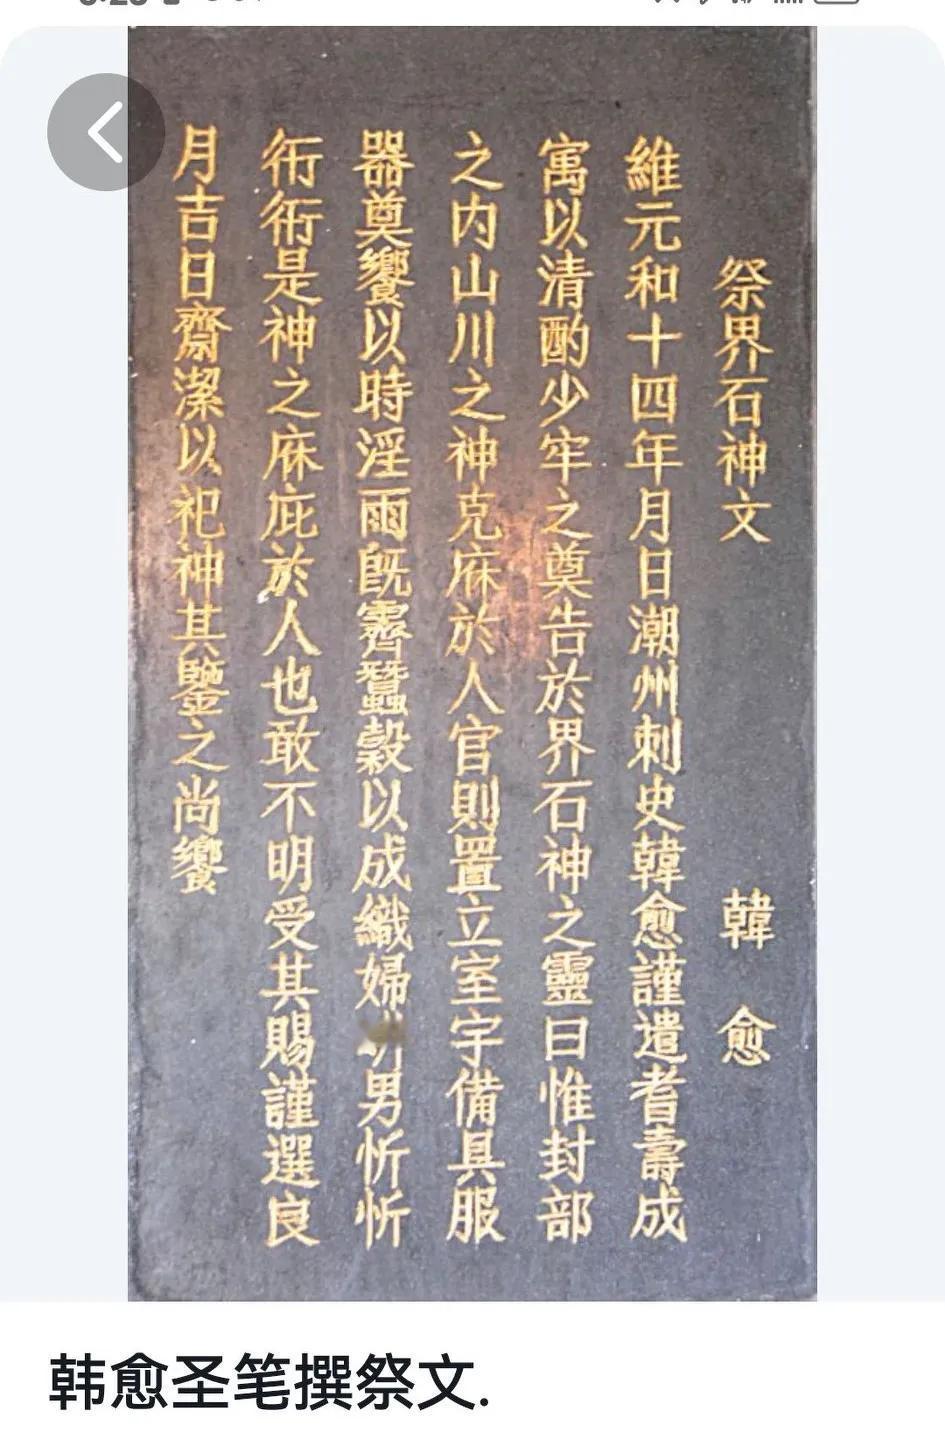 祭界石神文 韓愈
維元和十四年月日潮州刺史韓愈謹遣耆壽成
寓以清酌少牢之奠告於界石神之靈曰惟封部
之內山川之神克庥於人官則置立室宇備具服
器奠饗以時淫雨既霽蠶穀以成織婦男忻忻
衎衎是神之庥庇於人也敢不明受其賜謹選良
月吉日齋潔以祀神其鑒之尚饗
韩愈圣笔撰祭文.